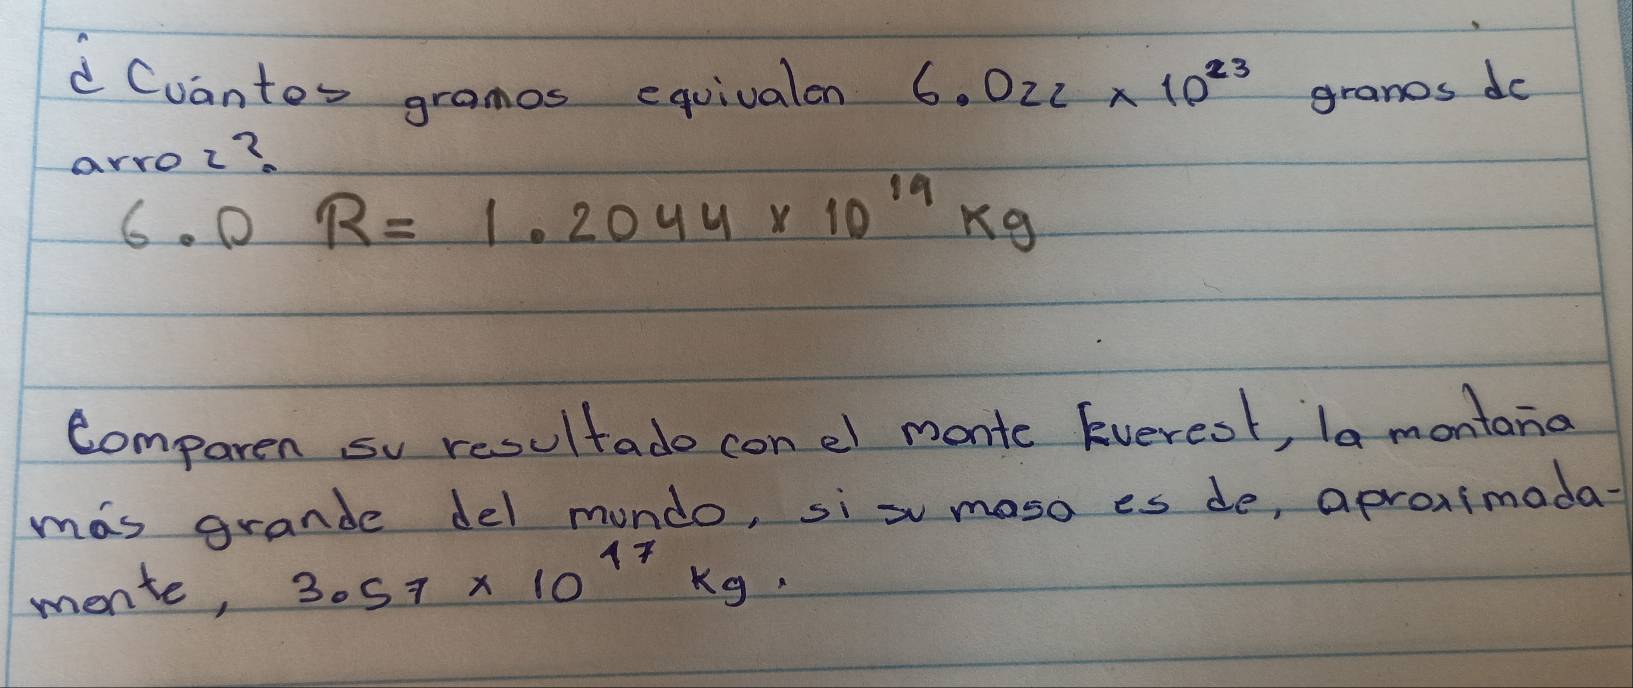 ¿Cuántos gramos equivalen 6.022 x 10²³ granos de
arroz?
6.0 R= 1.2044 x 10¹⁹ Kg
Comparen su resultado con el monte Everest, la montaña
más grande del mundo, si su masa es de, aproximada-
mente, 3.57 x 10¹⁷ Kg.